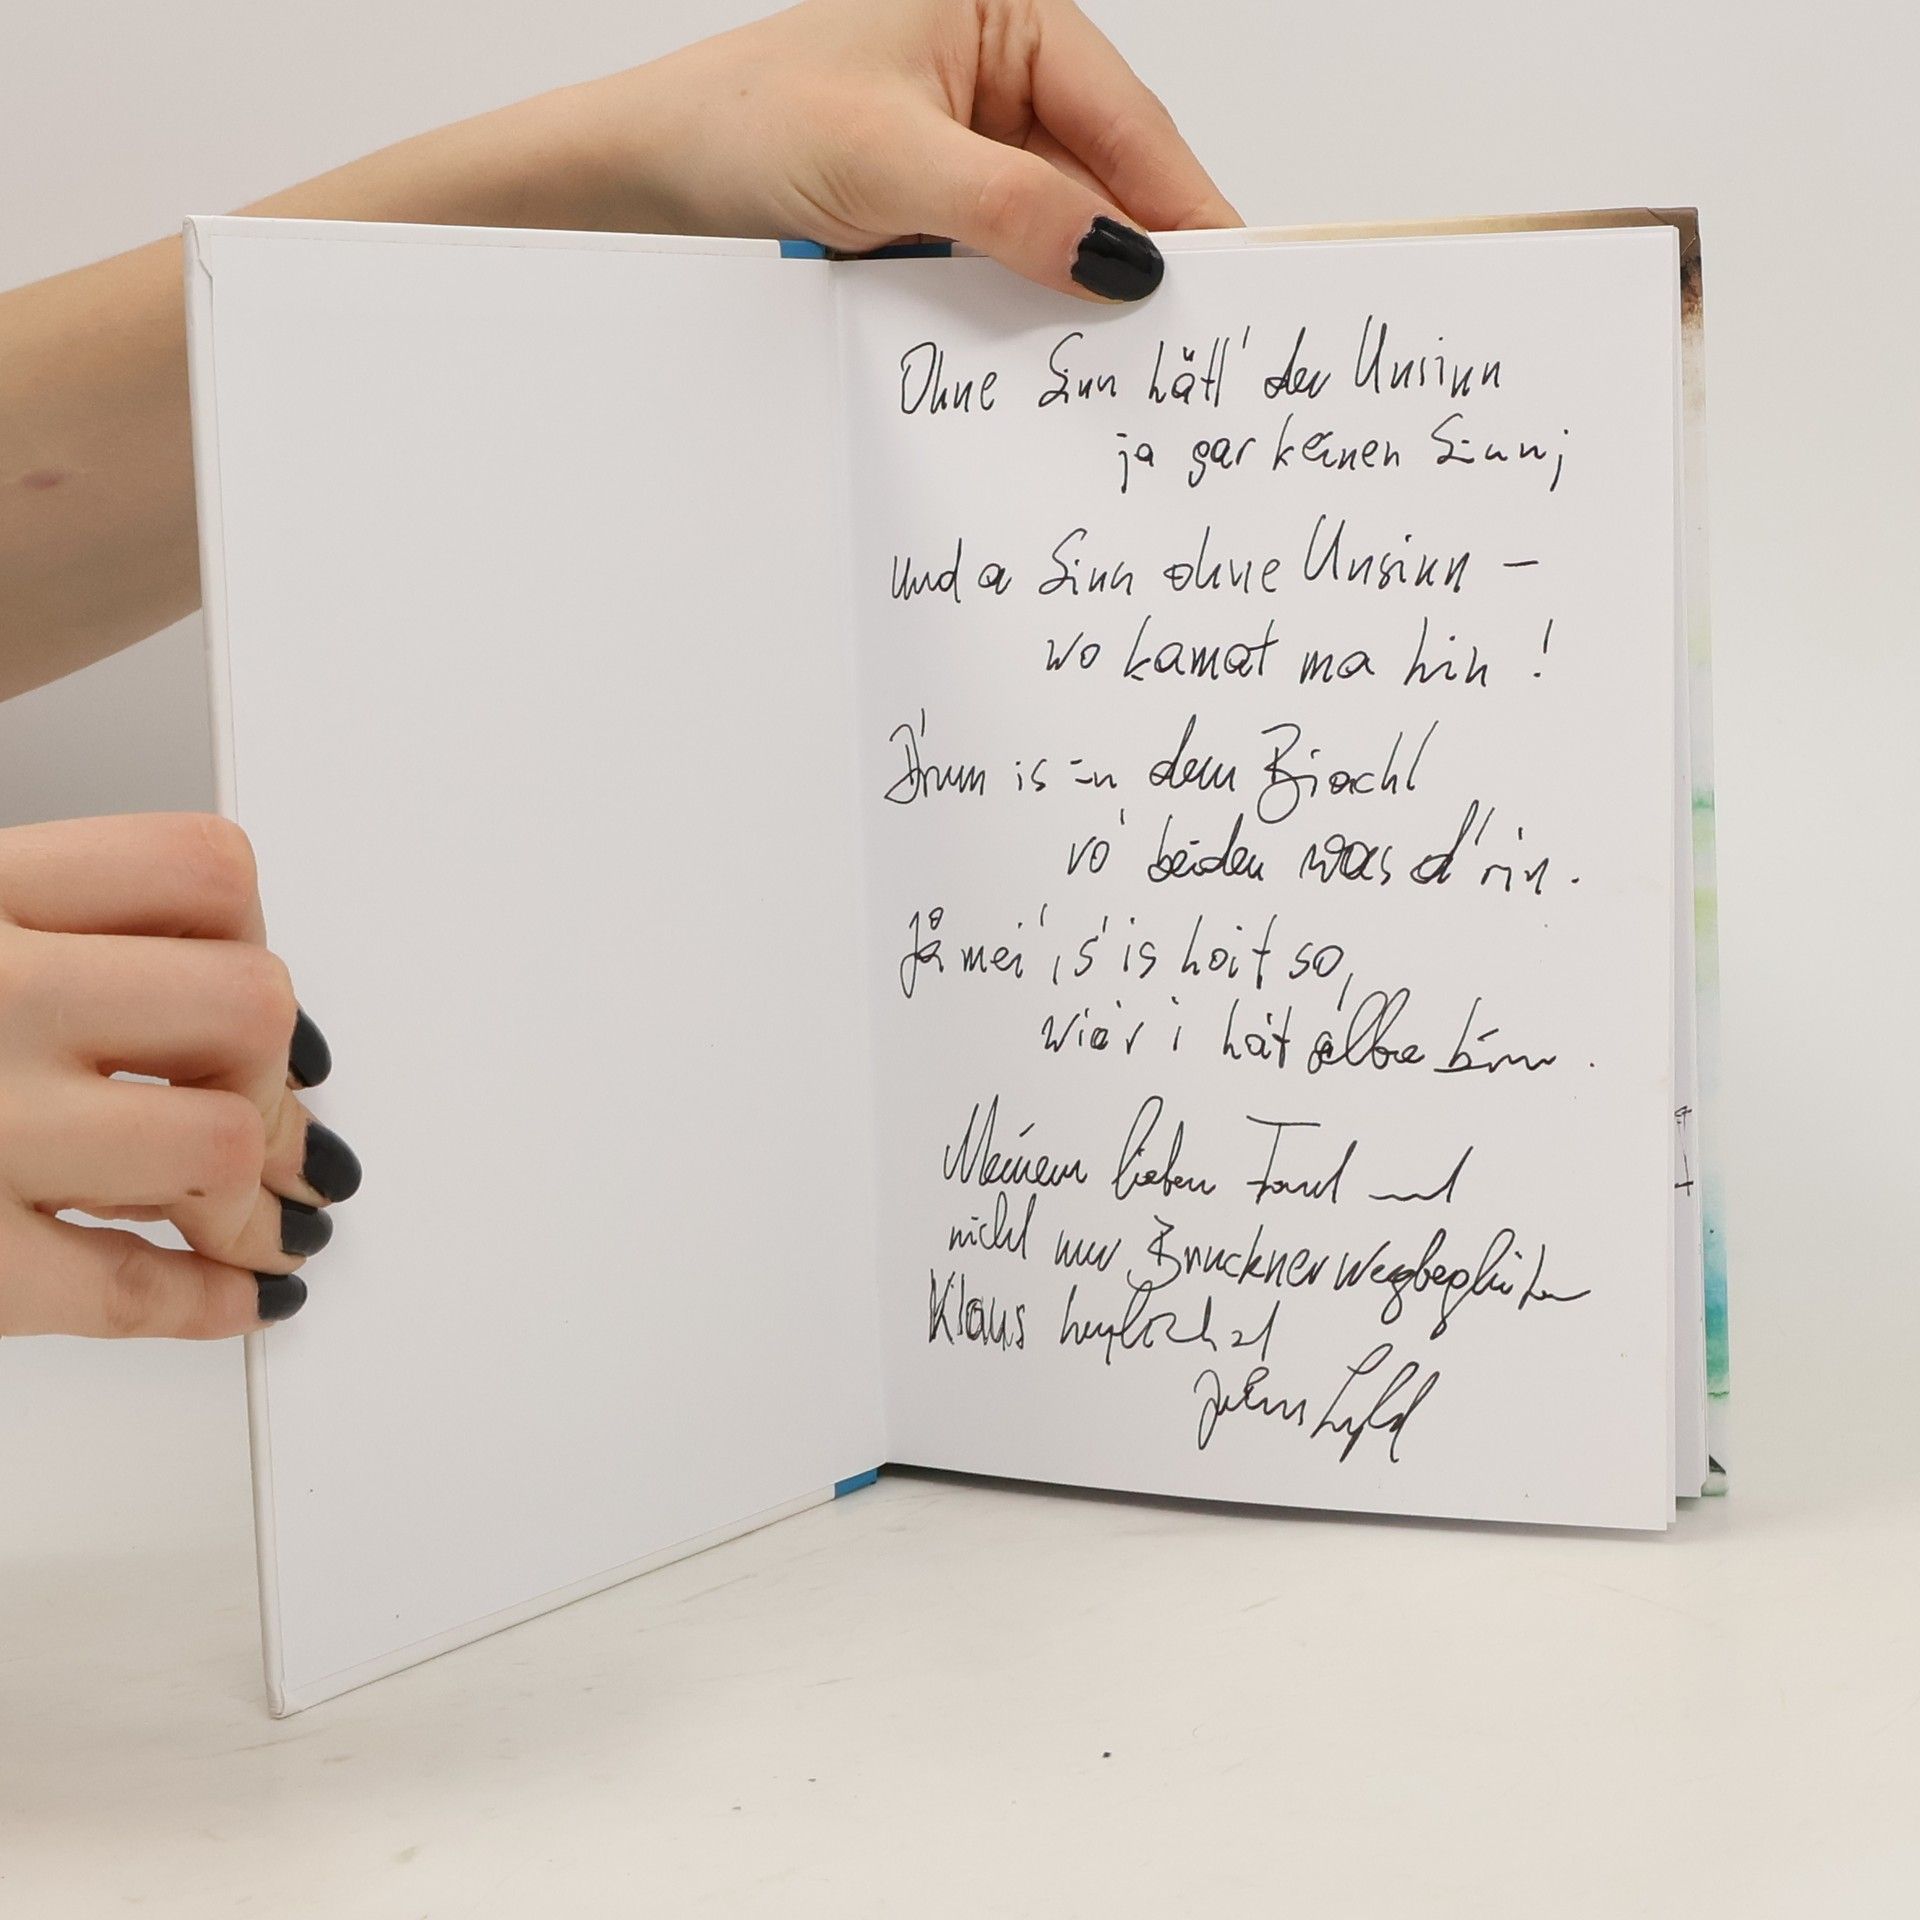 Ohne Sinn hätt' der Unsinn
ja gar keinen Sinn;
und a Sinn ohne Unsinn –
wo kamat ma hin!
D'rum is in dem Biachl
vo' beiden was d'rin.
Jå mei', s' is hoit so,
wia r i håt sölba bin.
Meinem lieben Freund und
nicht nur Brucknerwegbegleiter
Klaus herzlichst